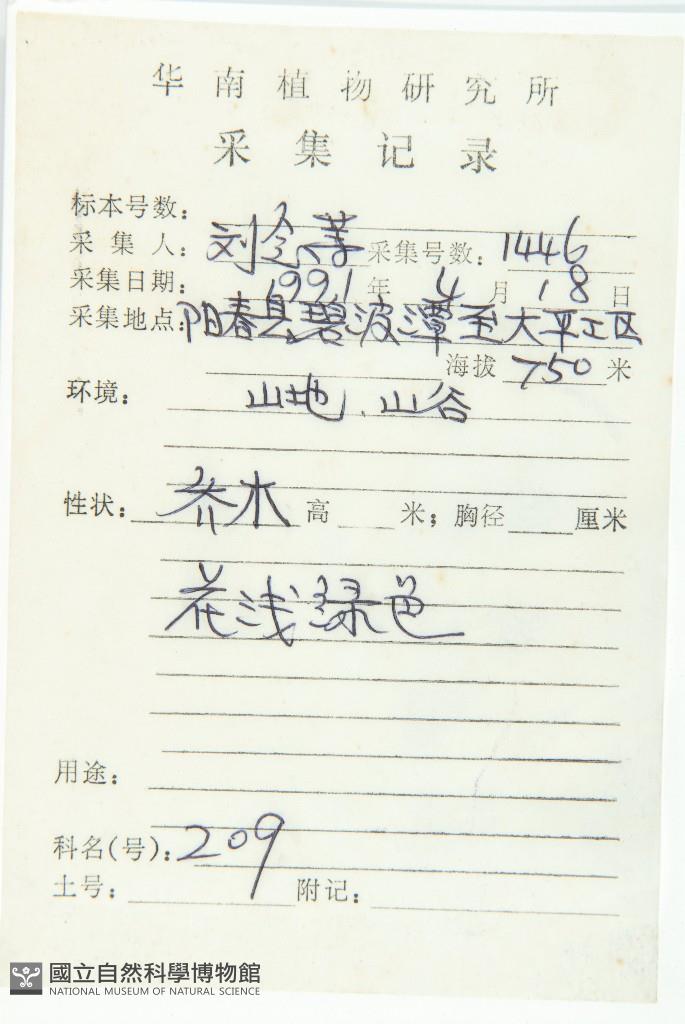 华南植物研究所
采集记录
标本号数:
采集人: 刘念 采集号数: 1446
采集日期: 1991年4月18日
采集地点: 阳春县碧波潭至大平工区
海拔 750 米
环境: 山地、山谷
性状: 乔木 高 米; 胸径 厘米
花浅绿色
用途:
科名(号): 209
土号: 附记:
國立自然科學博物館
NATIONAL MUSEUM OF NATURAL SCIENCE